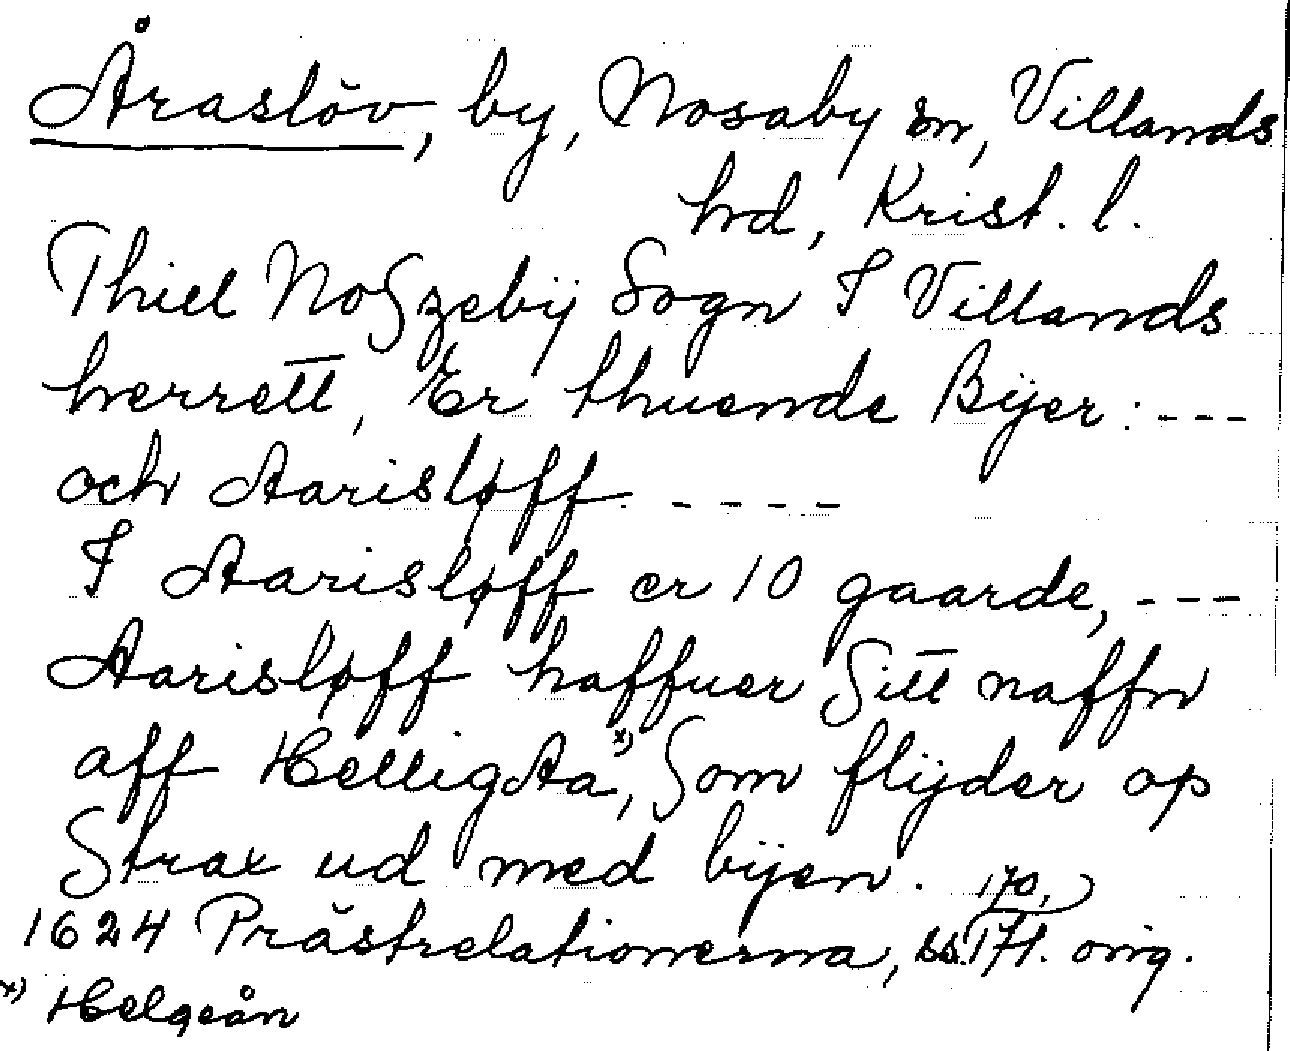 Åraslöv, by, Nosaby sn, Villands
hd, Krist. l.
Thiel Noszebÿ Sogn I Villands
herrett, Er thuende Bÿer: ---
och Aarisløff ----
I Aarisløff er 10 gaarde, ---
Aarisløff haffuer Sitt naffn
aff HelligAa x), Som flÿder op
Strax ud med bÿen.
1624 Prästrelationerna, ss. 170, 171. orig.
x) Helgeån